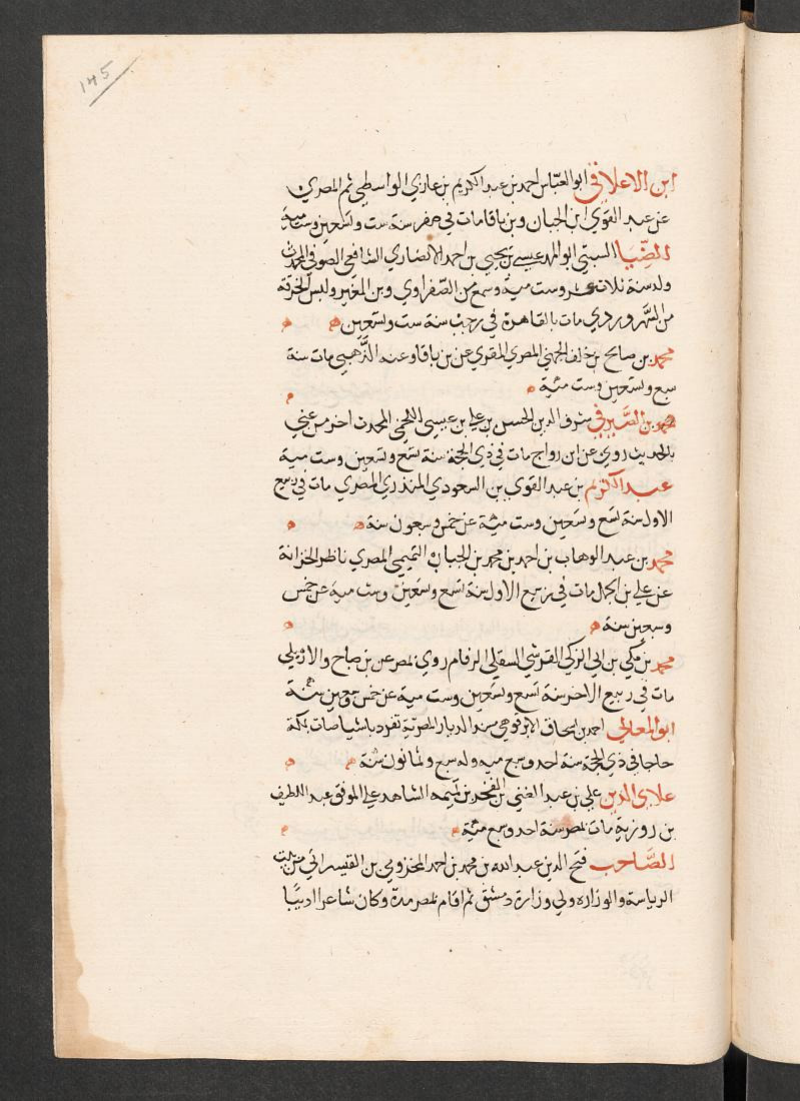 ١٣٥
ابن الاعلاقي ابو العباس احمد بن عبد الكريم بن غازي الواسطي ثم المصري
عن عبد القوي ابن الجباب وبن باقا مات في صفر سنة ست وتسعين وستمية
الضيا السبتي ابو الهد عيسى بن يحيى بن احمد الانصاري الشافعي الصوفي المحدث
ولد سنة ثلاث عشر وست مية وسمع من الصفراوي وبن المقير ولبس الخرقة
من السهروردي مات بالقاهرة في رجب سنة ست وتسعين
محمد بن صالح بن خلف الجهني المصري المقري عن بن باقا وعنه الذهبي مات سنة
سبع وتسعين وست مئية
محمد بن الصيرفي شرف الدين الحسن بن علي بن عيسى اللخمي المحدث اخر من عني
بالحديث روي عن ابن رواج مات في ذي الحجة سنة تسع وتسعين وست مية
عبد الكريم بن عبد القوي بن السعودي المنذري المصري مات في ربيع
الاول سنة تسع وتسعين وست مئية عن خمس وسبعون سنة
محمد بن عبد الوهاب بن احمد بن محمد بن الجباب التميمي المصري ناظر الخزانة
عن علي بن الجمل مات في ربيع الاول سنة تسع وتسعين وست مية عن خمس
وسبعين سنة
محمد بن مكي بن ابي الزكي القرشي السقلي الرقام روي بمصر عن بن صباح والاربلي
مات في ربيع الاخر سنة تسع وتسعين وست مية عن خمس وسبعين سنة
ابو المعالي احمد بن اسحاق الابرقوهي مسند الديار المصرية تفرد باشيا مات بمكة
حاجا في ذي الحجة سنة احد وسبع ميه وله سبع وثمانون سنة
علاي الدين علي بن عبد الغني بن الفخر بن تيميه الشاهد علي الموفق عبد اللطيف
بن روزبة مات بمصر سنة احد وسبع مئية
الصاحب فتح الدين عبد الله بن محمد بن احمد المخزومي بن القيسراني من بيت
الرياسة والوزاره ولي وزارة دمشق ثم اقام بمصر مدة وكان شاعرا اديبا